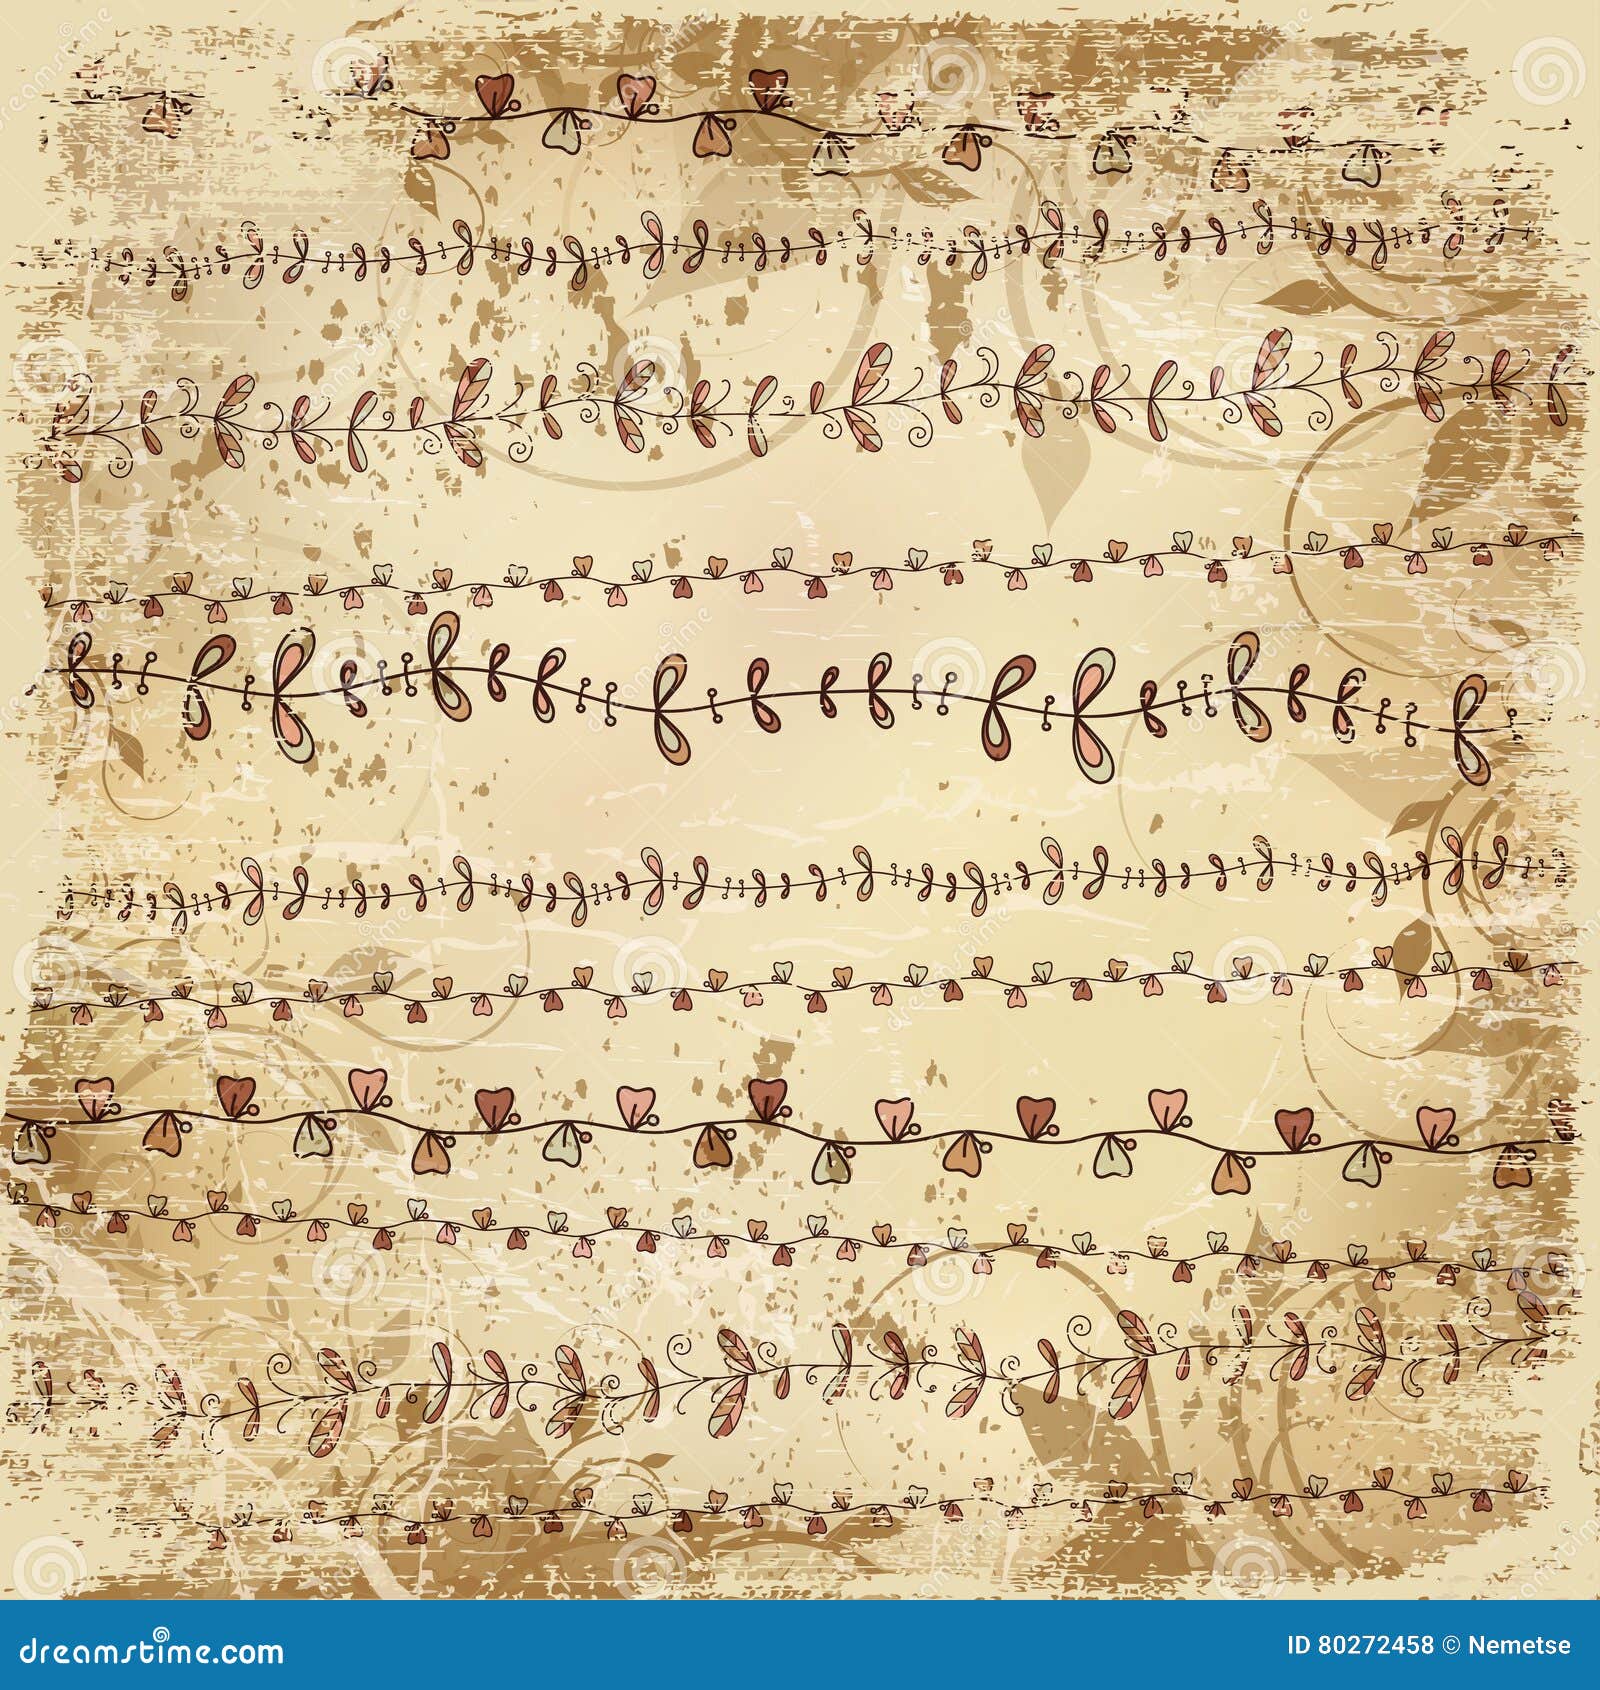 dreamstime.com
ID 80272458 © Nemetse